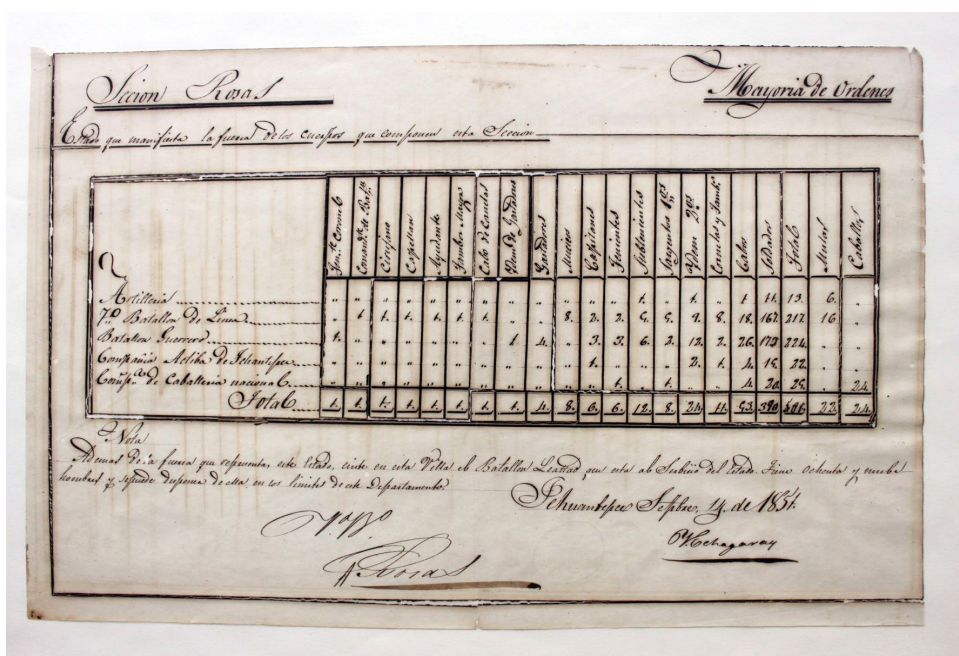 Seccion Rosas
Mayoria de Ordenes
Estado que manifiesta la fuerza de los cuerpos que componen esta Seccion
Ten.te Coronel Comand.te de Bat.n Cirujano Capellan Ayudante Tambor Mayor Cabo de Cornetas Ydem de Gastadores Gastadores Musicos Capitanes Tenientes Subtenientes Sargentos 1.os Ydem 2.os Cornetas y Tamb.s Cabos Soldados Total Mulas Caballos
Artilleria " " " " " " " " " " " " 1. " 1. " 1 11. 13. 6. "
7.o Batallon de Linea " 1 1. 1. 1. 1. 1. " " 8. 2. 2. 5. 5. 9. 8. 18. 167. 217 16 "
Batallon Guerrero 1. " " " " " " 1 4. " 3. 3. 6. 2. 12. 2. 26. 173 224. " "
Compañia Activa de Tehuantepec " " " " " " " " " " 1. " " " 2. 1. 4. 15. 22. " "
Comp.a de Caballeria nacional " " " " " " " " " " " 1. " 1. " " 4. 20. 25. " 24.
Total 1. 1. 1. 1. 1. 1. 1. 1. 4. 8. 6. 6. 12. 8. 24. 11. 53. 390 22. 24.
Nota
Ademas de la fuerza que representa este Estado, ecsiste en esta Villa el Batallon que esta al Servicio del estado. Tiene ochenta y nueve
hombres y se puede disponer de ella en los limites de este Departamento.
Tehuantepec Sepbre. 14. de 1851.
Echagaray
Rosas